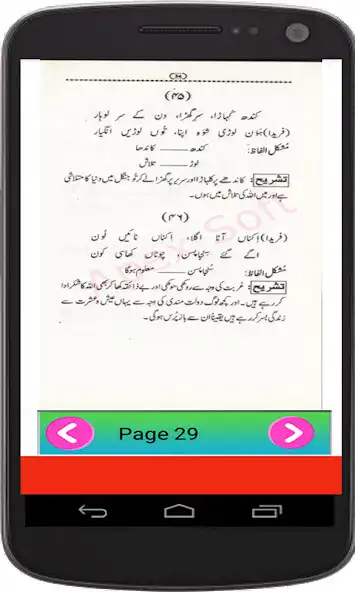 (۴۵)
کندھ کہاڑا، سر گھڑا، دن کے سر لوہار
(فریدا) ہَوں لوڑی شَوہ اپنا، تُوں لوڑیں انگیار
مشکل الفاظ: کندھ ـــــ کاندھا
لوڑ ـــــ تلاش
تشریح: کاندھے پر کلہاڑا اور سر پر گھڑا لے کر تُو جنگل میں دنیا کا متلاشی
ہے اور میں اللہ کی تلاش میں ہوں۔
(۴۶)
(فریدا) اِکناں آٹا اگلا، اِکناں ناہیں لون
اگے گئے سِنجاپسن، چوٹاں کھاسی کون
مشکل الفاظ: سُنجاپسن ـــــ معلوم ہوگا
تشریح: غربت کی وجہ سے روکھی سوکھی اور بے ذائقہ کھا کر بھی اللہ کا شکر ادا
کر رہے ہیں۔ اور کچھ لوگ دولت مندی کی وجہ سے یہاں عیش و عشرت سے
زندگی بسر کر رہے ہیں یقیناً اُن سے باز پُرس ہوگی۔
Apex Soft
Page 29